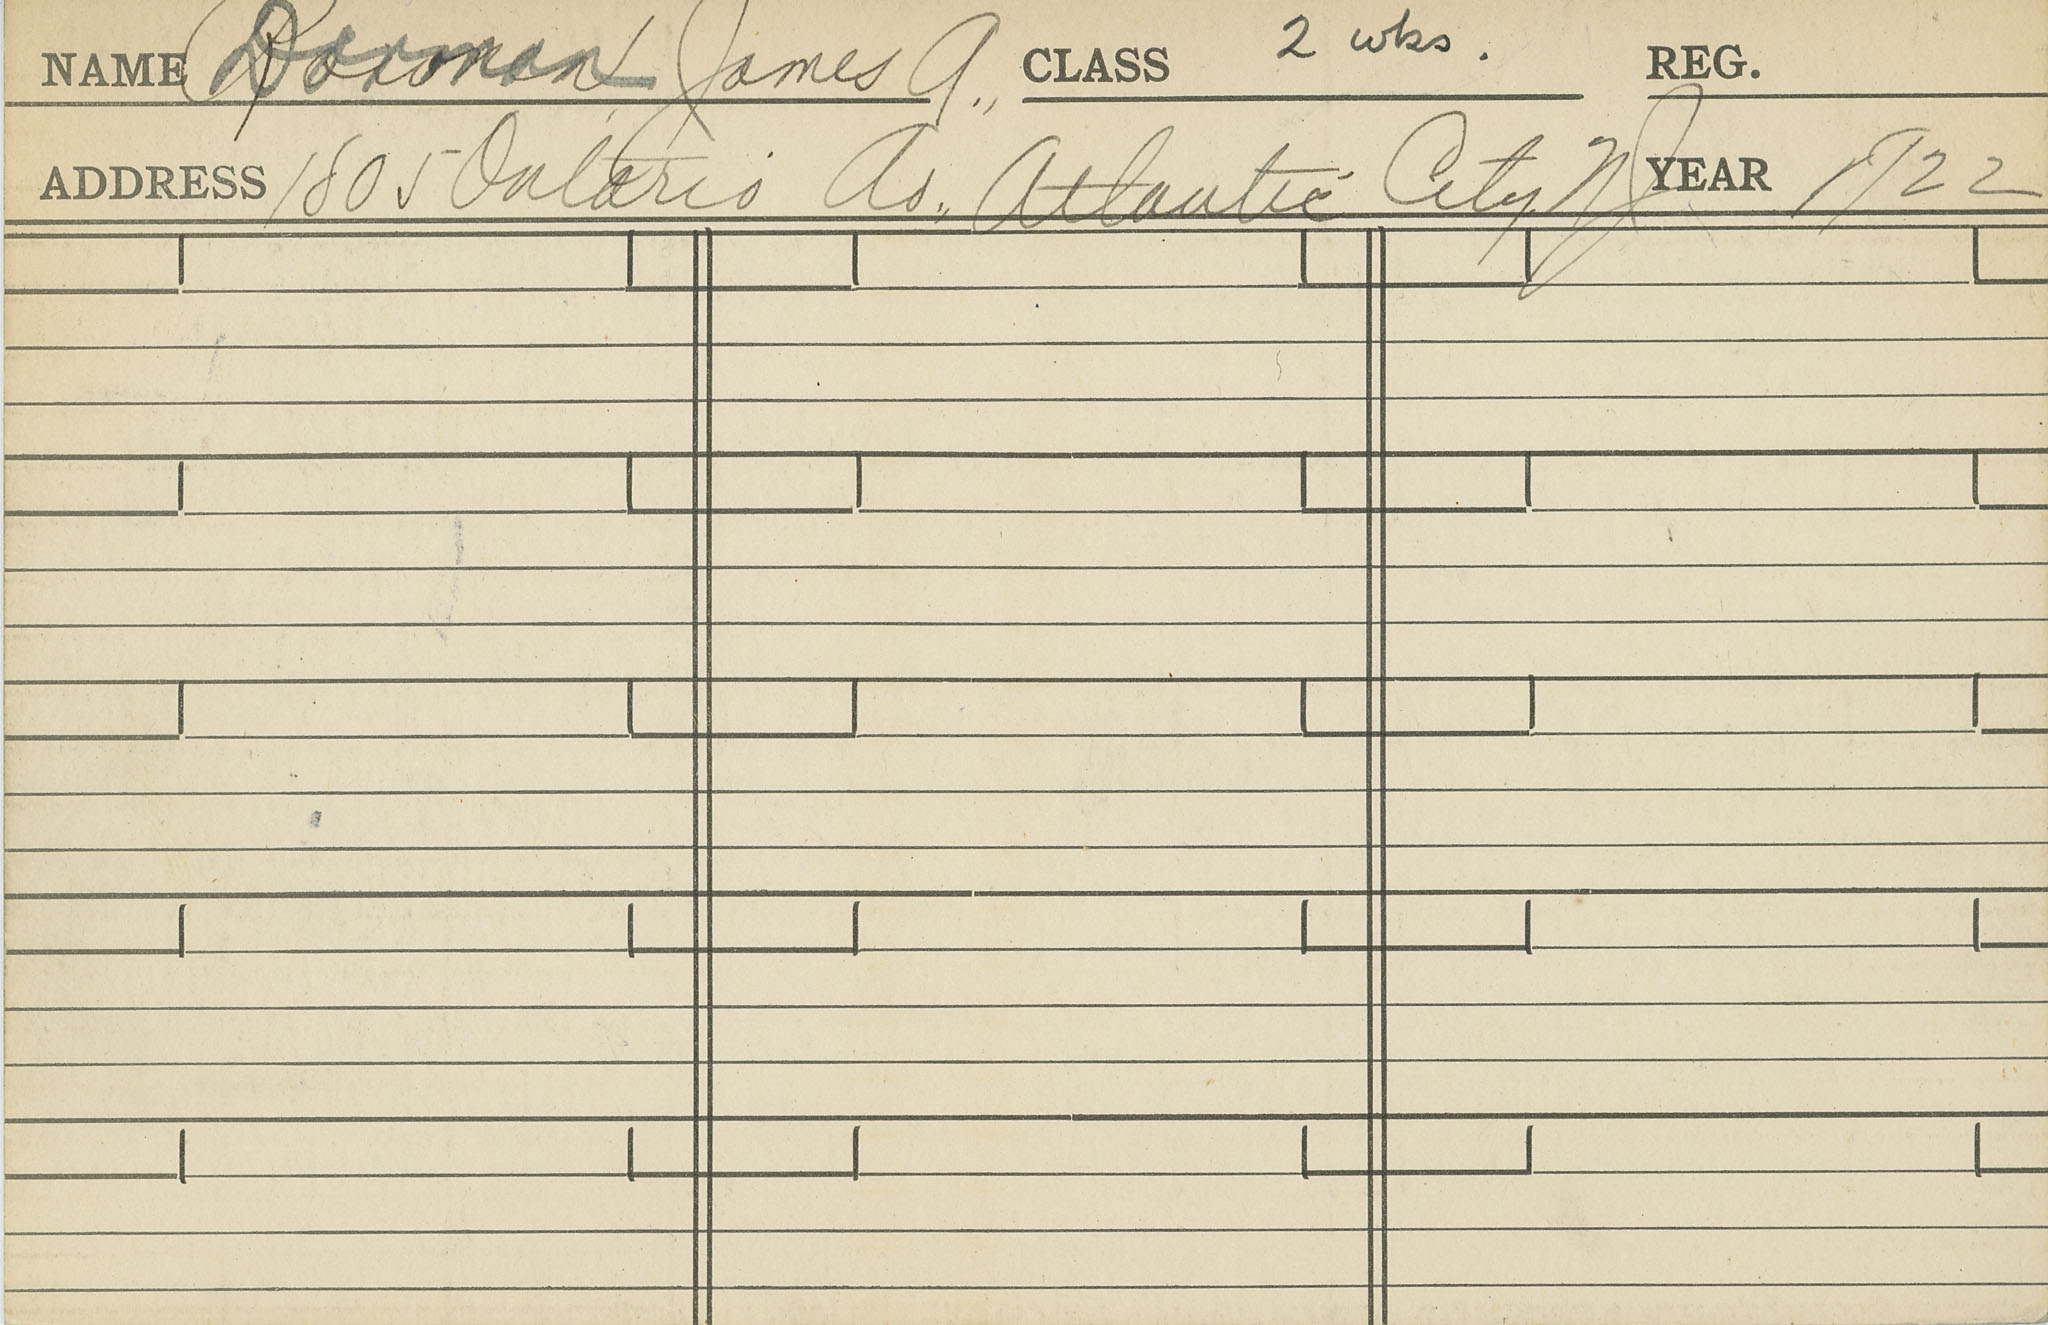 NAME Dorman, James A., CLASS 2 wks. REG.
ADDRESS 1805 Ontario Av., Atlantic City, NJ YEAR 1922